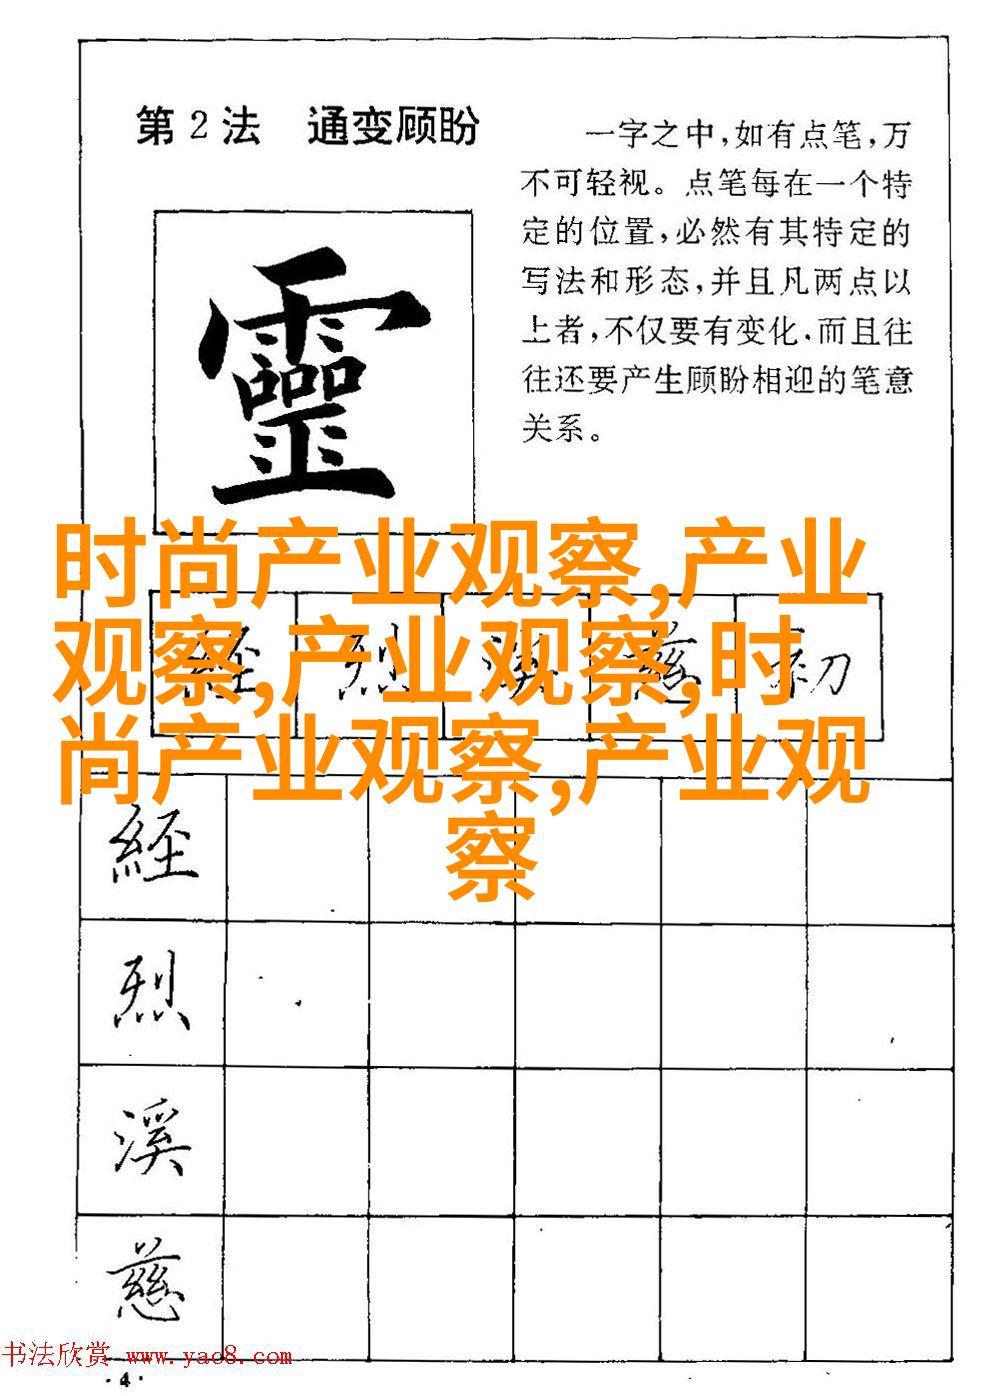 第2法 通变顾盼
一字之中,如有点笔,万
不可轻视。点笔每在一个特
定的位置,必然有其特定的
写法和形态,并且凡两点以
上者,不仅要有变化.而且往
往还要产生顾盼相迎的笔意
关系。
靈
时尚产业观察,产业
观察,产业观察,时
尚产业观察,产业观
察
經 烈 溪 慈 初
經
烈
溪
慈
书法欣赏 www.yao8.com
·4·